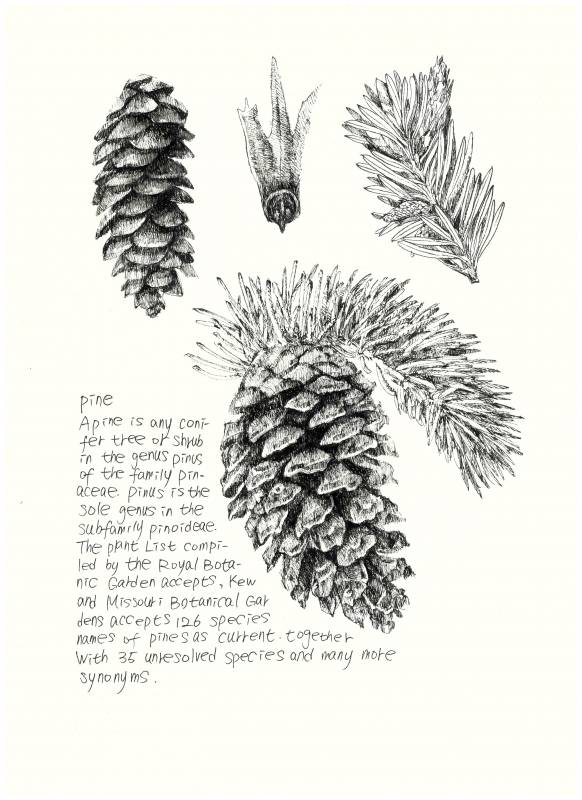 pine
A pine is any coni-
fer tree or shrub
in the genus pinus
of the family pin-
aceae. pinus is the
sole genus in the
subfamily pinoideae.
The plant List compi-
led by the Royal Bota-
nic Garden accepts, Kew
and Missouri Botanical Gar
dens accepts 126 species
names of pines as current. together
With 35 unresolved species and many more
synonyms.